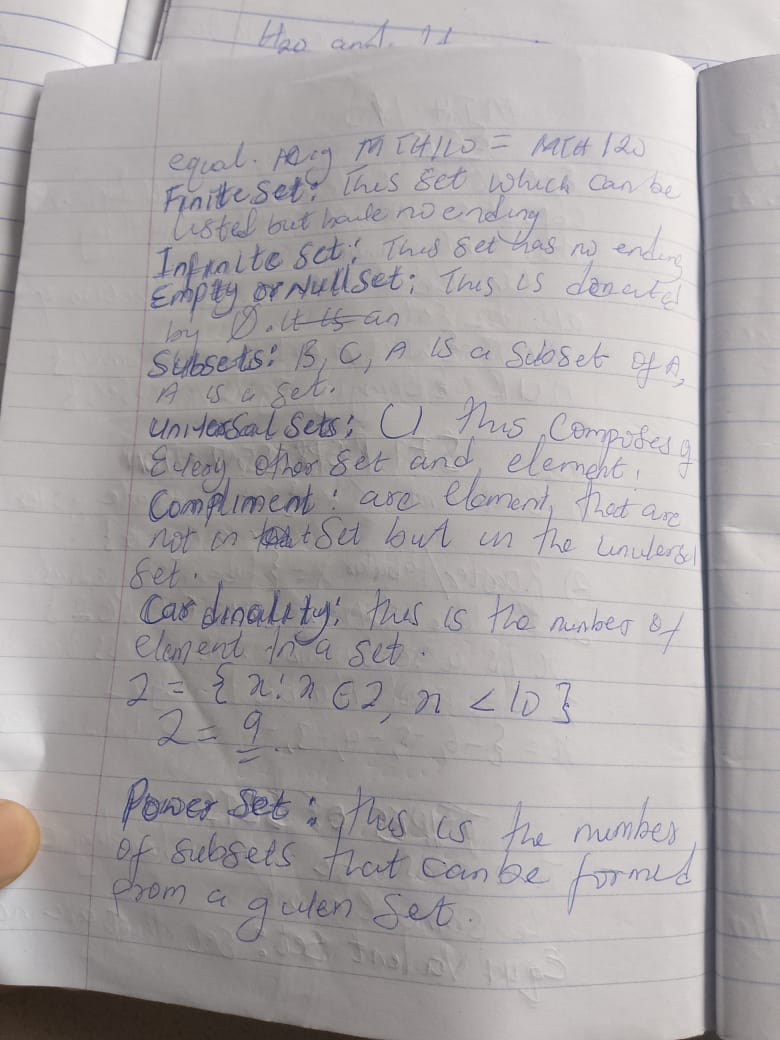 H20 and
equal. MTH110 = MTH 120
Finite Set: This Set which can be
listed but have no ending
Infinite Set: This Set has no ending
Empty or Null Set: This is donated
by Ø. It is an
Subsets: B, C, A is a Subset of A,
A is a set.
Universal Sets: U this Composes of
Every other Set and element.
Compliment: are element, that are
not in Set but in the universal
Set.
Cardinality: this is the number of
element in a set.
2 = { x: x ∈ 2, x < 10 }
2 = 9
Power Set: this is the number
of subsets that can be formed
from a given Set.